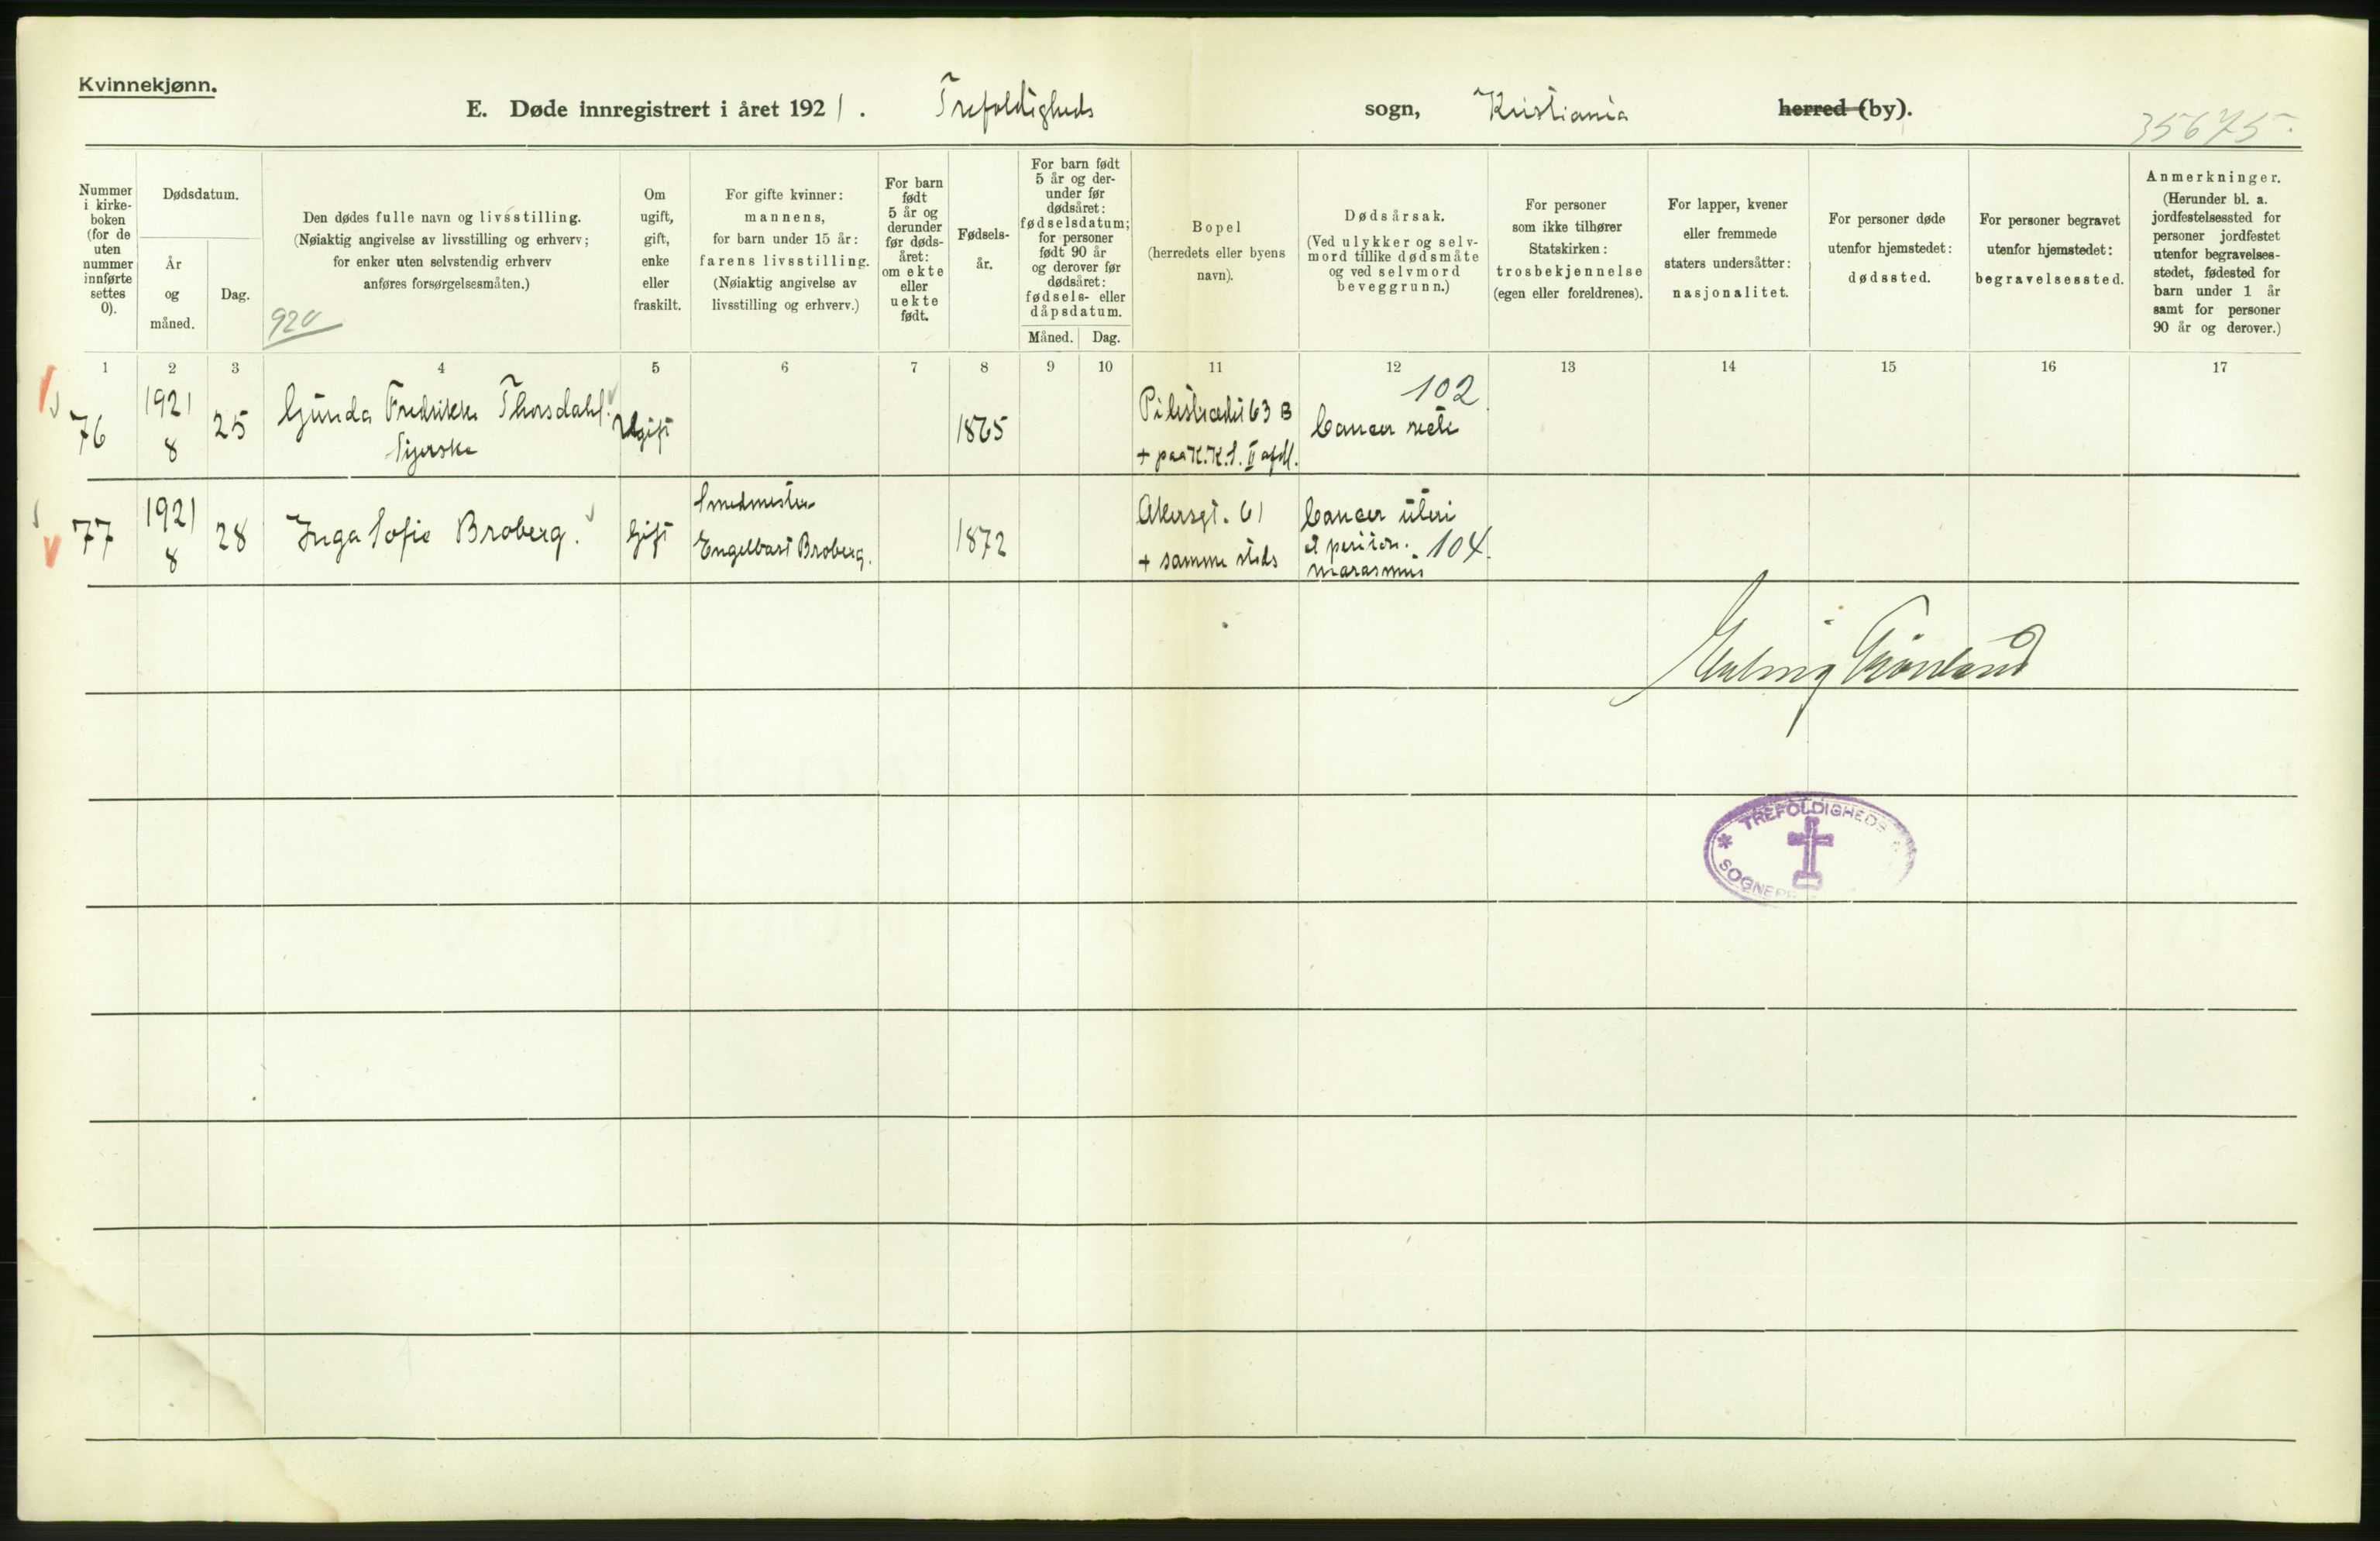 Kvinnekjønn.
E. Døde innregistrert i året 1921. Trefoldigheds sogn, Kristiania herred (by).
35675.
Nummer i kirke-
boken
(for de
uten
nummer
innførte
settes
0).
Dødsdatum.
År
og
måned.
Dag.
Den dødes fulle navn og livsstilling.
(Nøiaktig angivelse av livsstilling og erhverv;
for enker uten selvstendig erhverv
anføres forsørgelsesmåten.)
920
Om
ugift,
gift,
enke
eller
fraskilt.
For gifte kvinner:
mannens,
for barn under 15 år:
farens livsstilling.
(Nøiaktig angivelse av
livsstilling og erhverv.)
For barn
født
5 år og
derunder
før døds-
året:
om ekte
eller
uekte
født.
Fødsels-
år.
For barn født
5 år og der-
under før
dødsåret:
fødselsdatum;
for personer
født 90 år
og derover før
dødsåret:
fødsels- eller
dåpsdatum.
Måned. Dag.
Bopel
(herredets eller byens
navn).
Dødsårsak.
(Ved ulykker og selv-
mord tillike dødsmåte
og ved selvmord
beveggrunn.)
For personer
som ikke tilhører
Statskirken:
trosbekjennelse
(egen eller foreldrenes).
For lapper, kvener
eller fremmede
staters undersåtter:
nasjonalitet.
For personer døde
utenfor hjemstedet:
dødssted.
For personer begravet
utenfor hjemstedet:
begravelsessted.
Anmerkninger.
(Herunder bl. a.
jordfestelsessted for
personer jordfestet
utenfor begravelses-
stedet, fødested for
barn under 1 år
samt for personer
90 år og derover.)
1 2 3 4 5 6 7 8 9 10 11 12 13 14 15 16 17
76
1921
8
25
Gunda Fredrikke Thorsdahl.
Syerske
Ugift
1865
Pilestrædet 63 B
+ paa K.K.S. II afdl.
102
Cancer recti
77
1921
8
28
Inga Sofie Broberg.
Gift
Smedmester
Engelbart Broberg.
1872
Akersgt. 61
+ samme steds
Cancer uteri
et periton. 104.
marasmus
Erling Grønland
TREFOLDIGHEDS
SOGNEPR